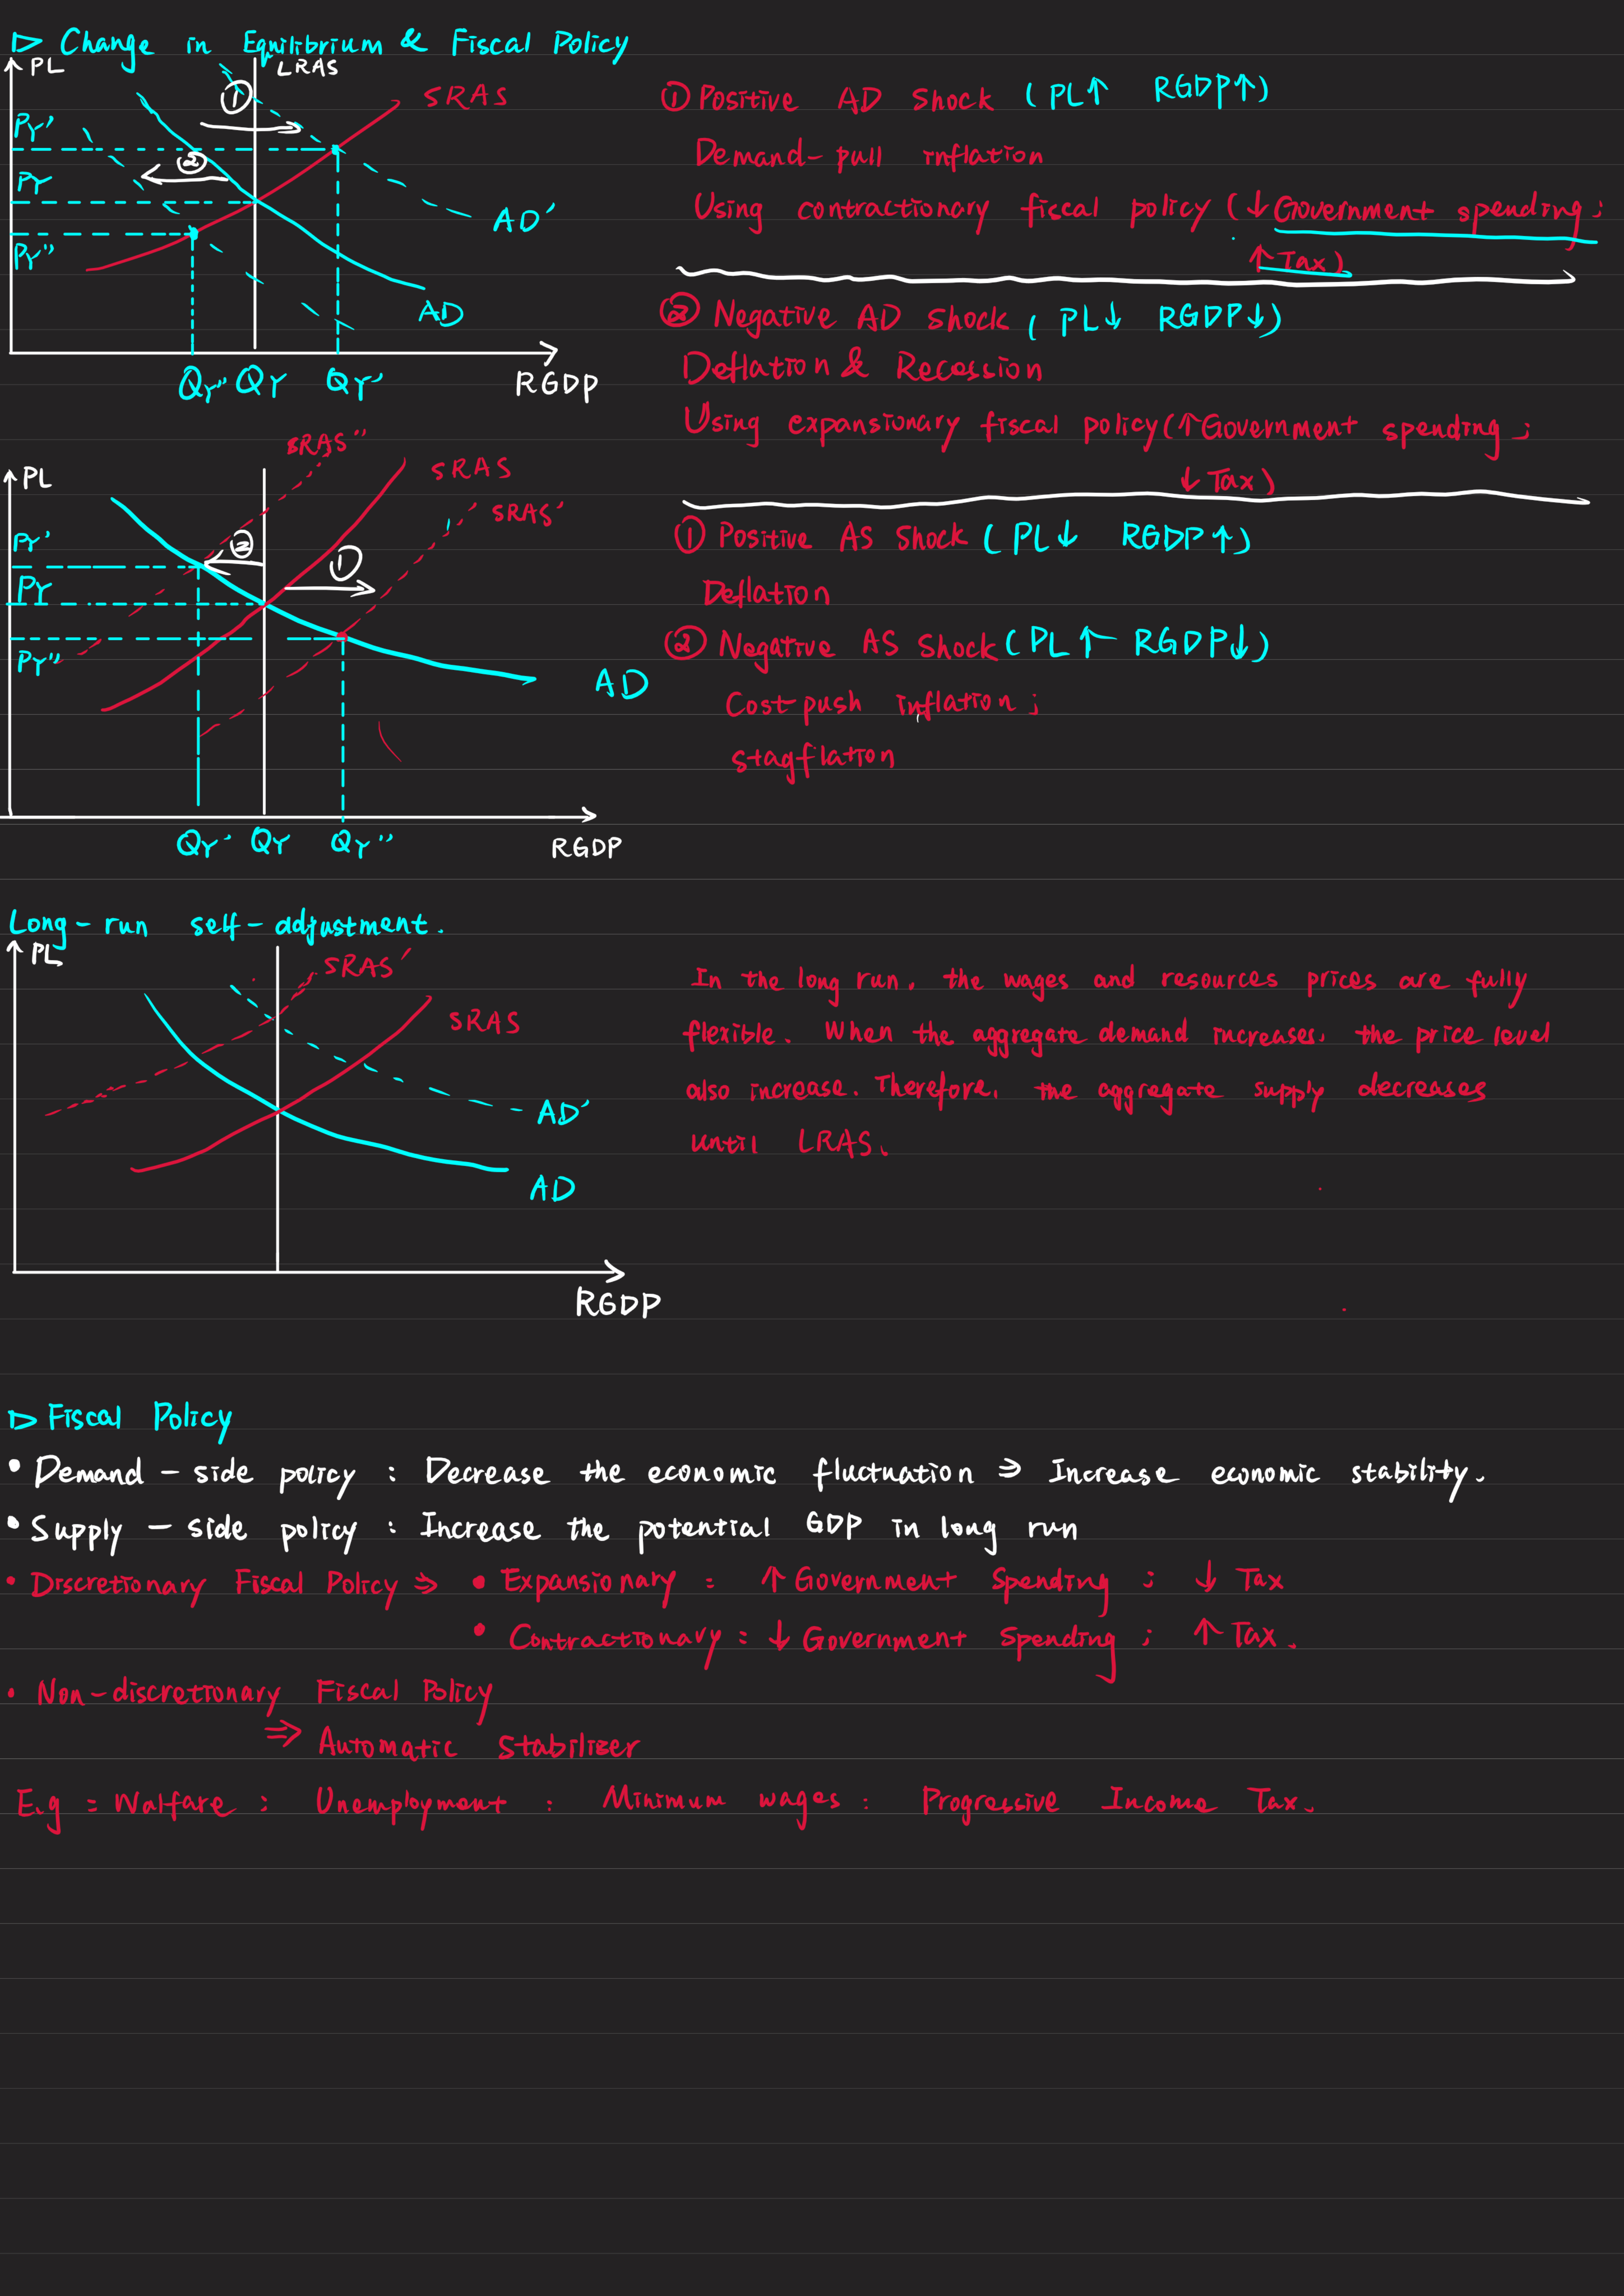 ▷ Change in Equilibrium & Fiscal Policy
PL
LRAS
SRAS
①
②
PY'
PY
PY''
AD'
AD
QY'' QY QY'
RGDP
① Positive AD Shock (PL↑ RGDP↑)
Demand-pull inflation
Using contractionary fiscal policy (↓Government spending;
↑Tax)
② Negative AD Shock (PL↓ RGDP↓)
Deflation & Recession
Using expansionary fiscal policy(↑Government spending;
↓Tax)
PL
SRAS''
SRAS
SRAS'
②
①
PY'
PY
PY''
AD
QY' QY QY''
RGDP
① Positive AS Shock (PL↓ RGDP↑)
Deflation
② Negative AS Shock (PL↑ RGDP↓)
Cost-push inflation;
stagflation
Long-run self-adjustment.
PL
SRAS'
SRAS
AD'
AD
RGDP
In the long run, the wages and resources prices are fully
flexible. When the aggregate demand increases, the price level
also increase. Therefore, the aggregate supply decreases
until LRAS.
▷ Fiscal Policy
• Demand-side policy: Decrease the economic fluctuation ⇒ Increase economic stability.
• Supply-side policy: Increase the potential GDP in long run
• Discretionary Fiscal Policy ⇒ • Expansionary: ↑Government Spending; ↓ Tax
• Contractionary: ↓Government Spending; ↑Tax.
• Non-discretionary Fiscal Policy
⇒ Automatic Stabilizer
E.g: Walfare: Unemployment: Minimum wages: Progressive Income Tax.